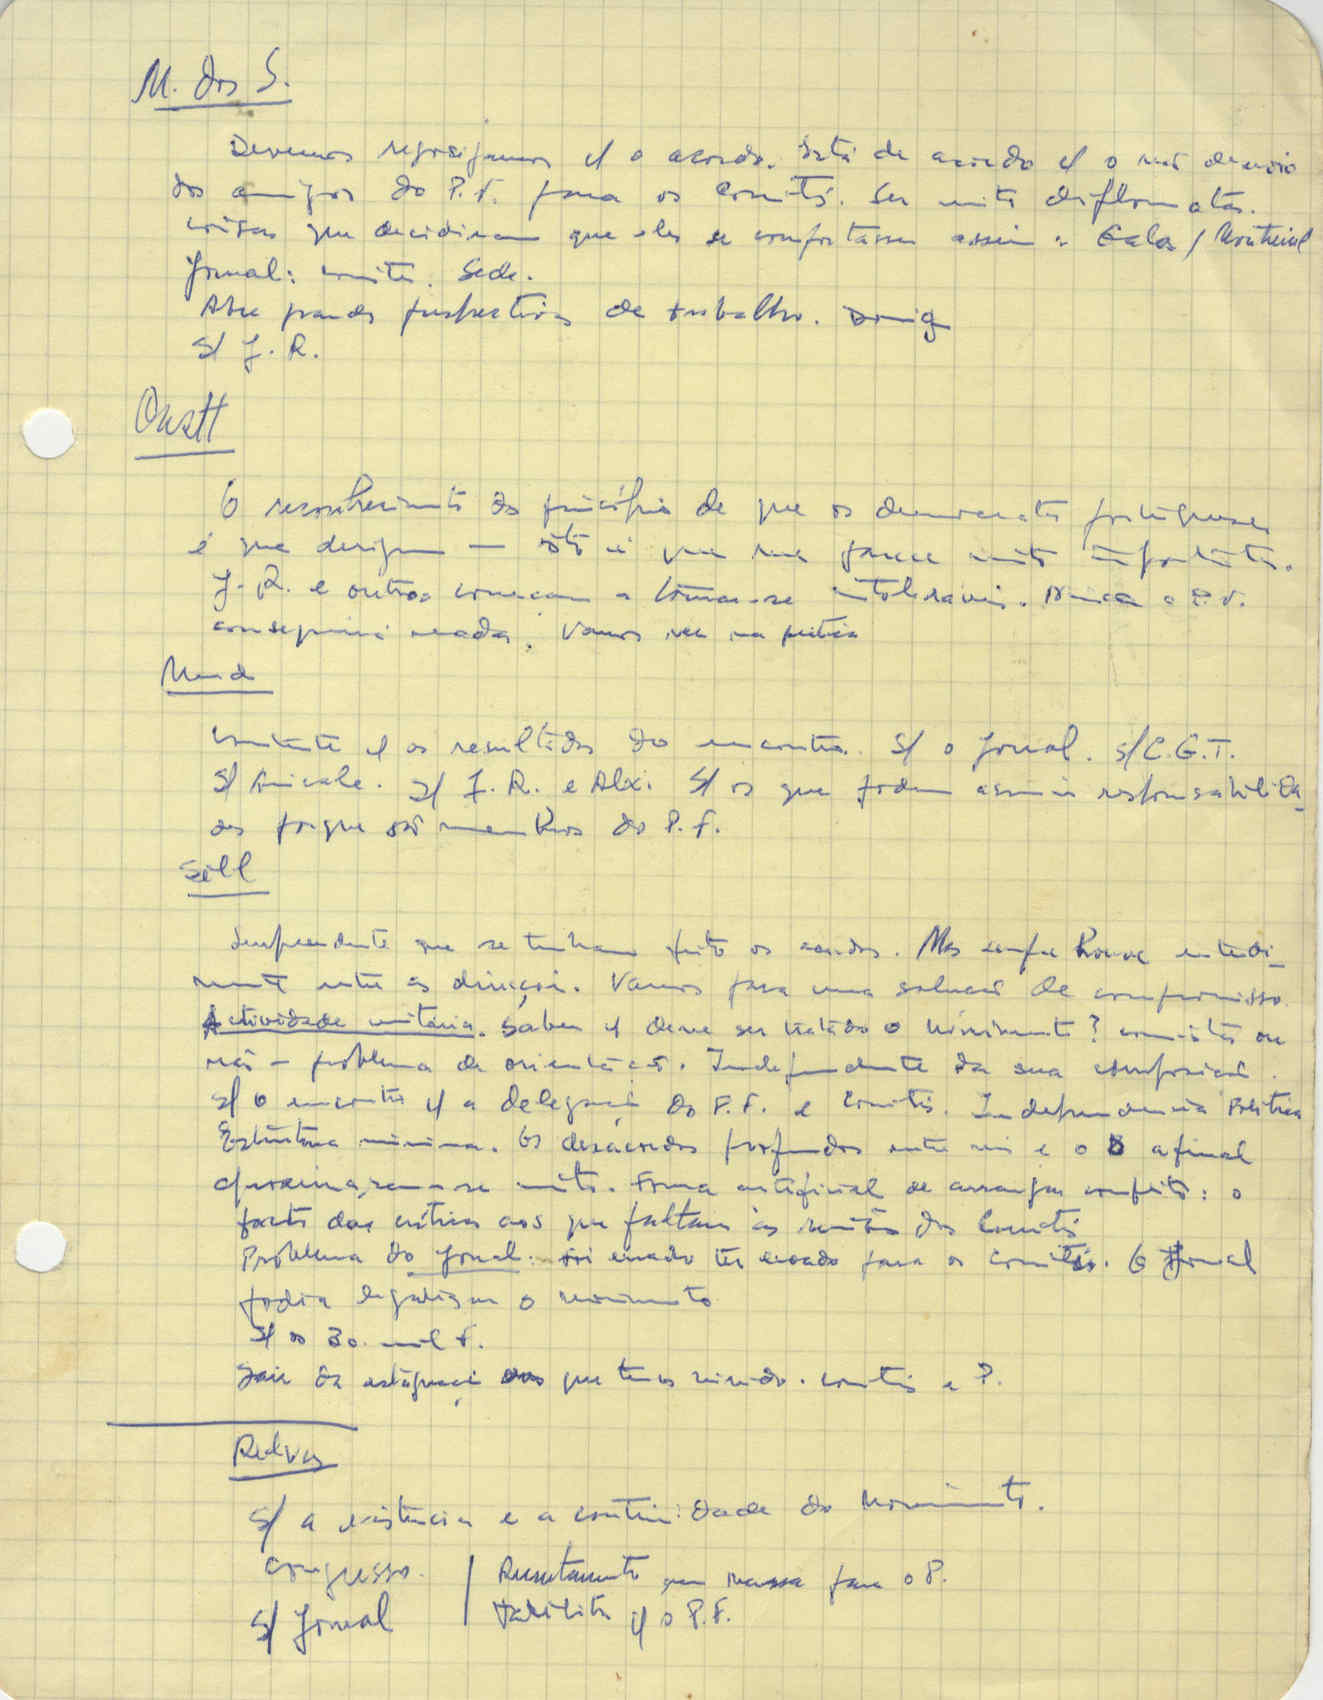 M. dos S.
Devemos regozijarmos c/ o acordo. Está de acordo c/ o
dos amigos do P.F. para os Comités. Ser mais diplomatas.
coisas que decidiram que eles se comportassem assim: Gala / Montreuil
Jornal: comité. Sede.
Abre grandes perspectivas de trabalho.
S/ J. R.
O reconhecimento do princípio de que os democratas portugueses
é que dirigem — isto é que me parece muito importante.
J. R. e outros começam a tornar-se intoleráveis. Nunca o P.F.
conseguirá nada. Vamos ver na prática
Contente c/ os resultados do encontro. S/ o Jornal. S/ C.G.T.
S/ Amicale. S/ J. R. e Alx. S/ os que podem assumir responsabilida-
des porque são membros do P.F.
Sill
Surpreendente que se tenham feito os acordos. Mas sempre houve entendi-
mento entre as direcções. Vamos para uma solução de compromisso.
Actividade unitária. Saber c/ deve ser tratado o Movimento? comités ou
não — problema de orientação. Independente da sua composição.
S/ o encontro c/ a delegação do P.F. e Comités. Independência Política
Estrutura mínima. Os desacordos profundos entre nós e o B afinal
aproximaram-se muito. Forma artificial de arranjar conflito: o
facto das críticas aos que faltam às reuniões dos Comités
Problema do Jornal. Foi errado ter enviado para os comités. O Jornal
podia legalizar o movimento
S/ os 30 mil F.
Sair da estagnação que temos vivido. Comités e P.
Relvas
S/ a existência e a continuidade do Movimento.
Congresso. | Recrutamento em massa para o P.
S/ Jornal | c/ o P.F.